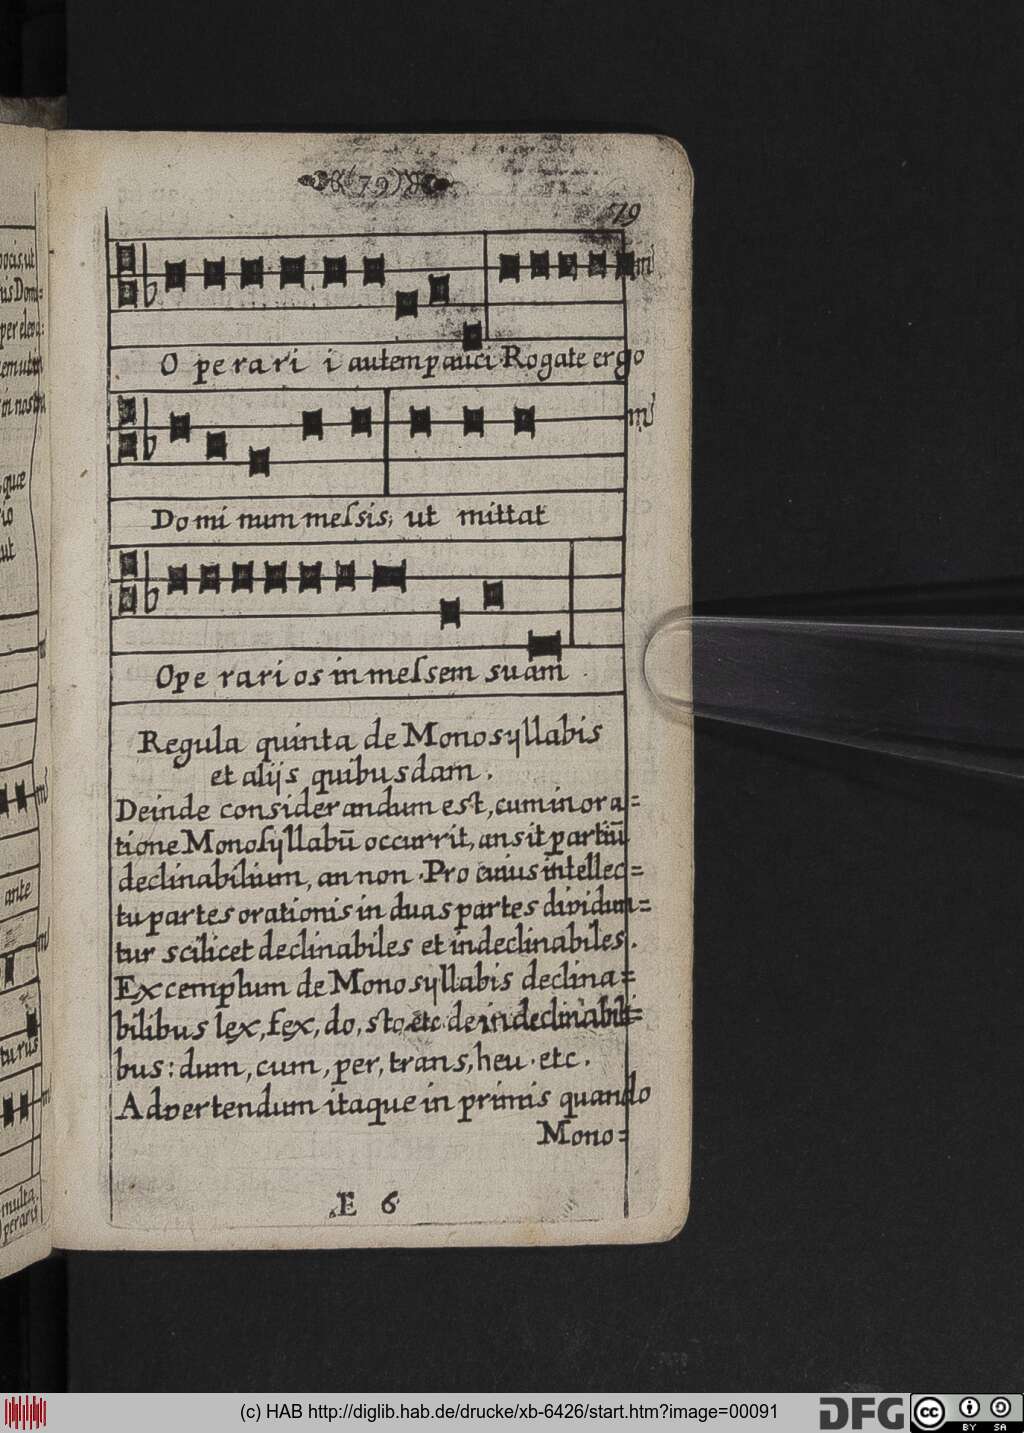 (79)
79
O perari i autem pauci. Rogate ergo
Domi num meſsis, ut mittat
Ope rari os in meſsem suam.
Regula quinta de Monosyllabis
et alijs quibusdam.
Deinde considerandum est, cum in ora=
tione Monoſyllabū occurrit, an sit partiū
declinabilium, an non. Pro cuius intellec=
tu partes orationis in duas partes dividun=
tur scilicet declinabiles et indeclinabiles.
Excemplum de Monosyllabis declina=
bilibus lex, fex, do, sto, etc. de indeclinabili=
bus: dum, cum, per, trans, heu. etc.
Advertendum itaque in primis quando
Mono=
E 6
pocis, ut
in nostra
quæ
ut
ante
turus
multa
operaris
(c) HAB http://diglib.hab.de/drucke/xb-6426/start.htm?image=00091
DFG
cc
BY SA